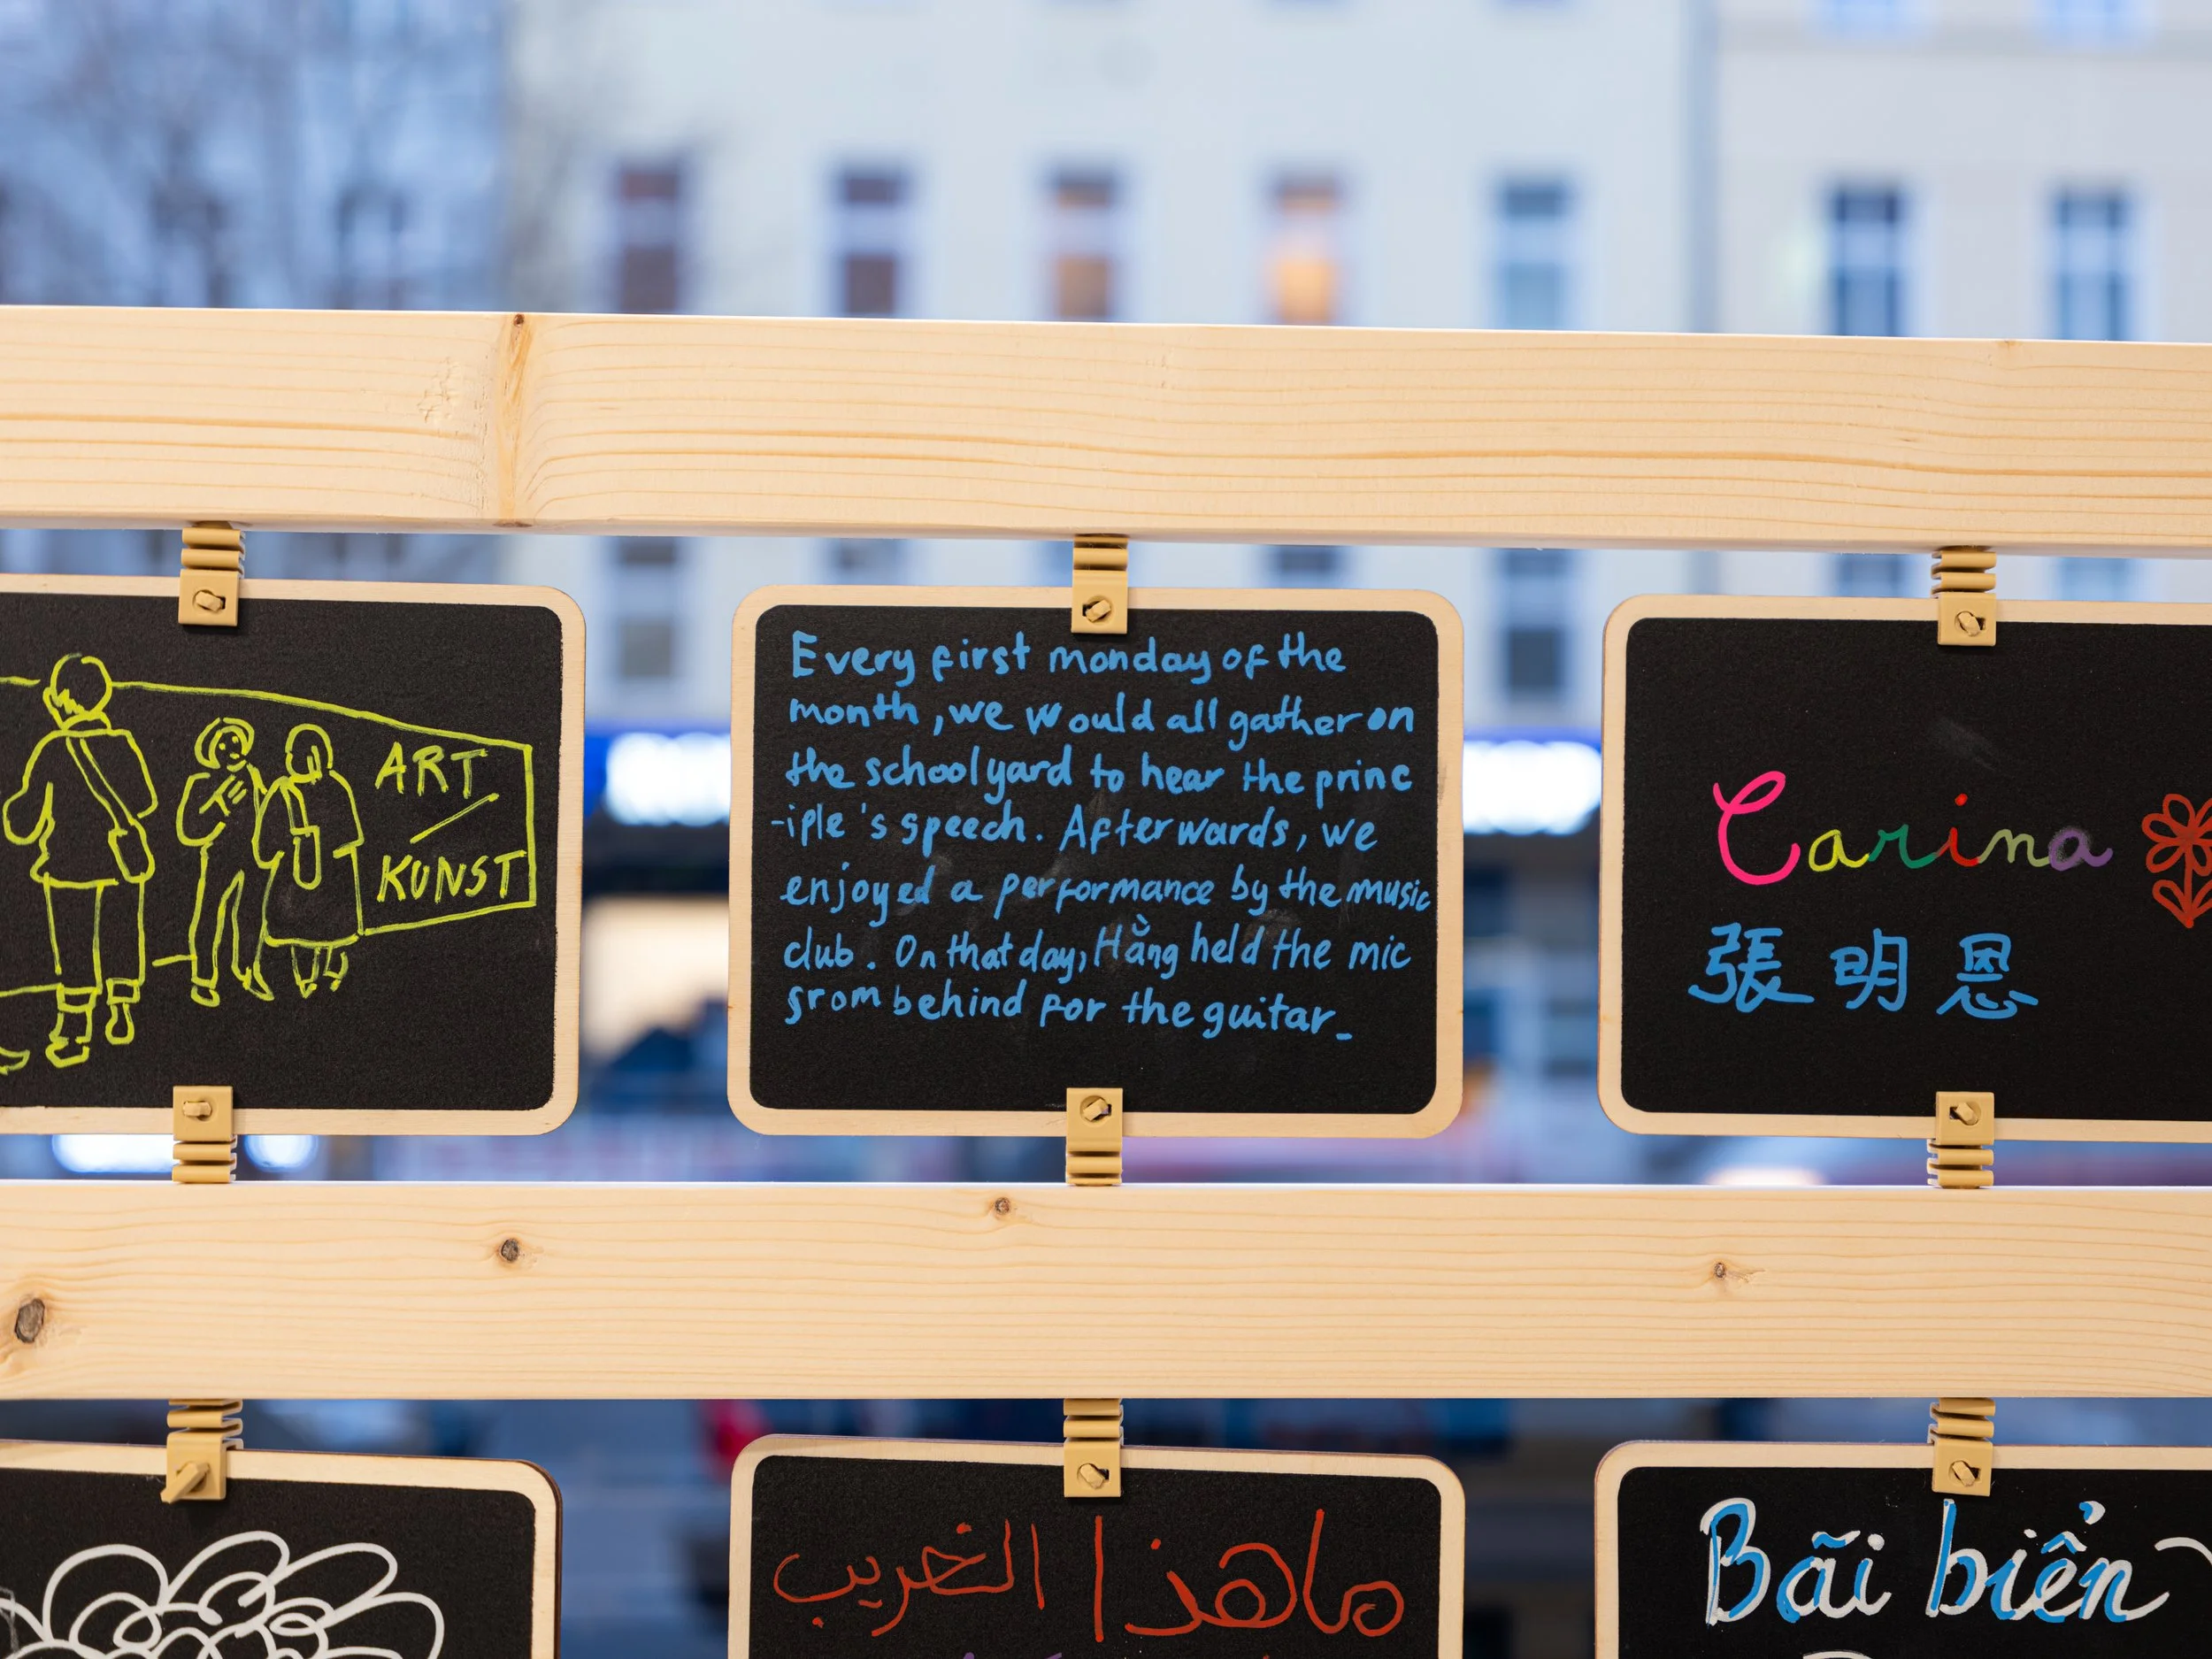 ART
/
KUNST
Every first monday of the
month, we would all gather on
the schoolyard to hear the princ
-iple's speech. Afterwards, we
enjoyed a performance by the music
club. On that day, Hằng held the mic
srom behind for the guitar_
Carina
張明恩
ماهذا الغريب
Bãi biển